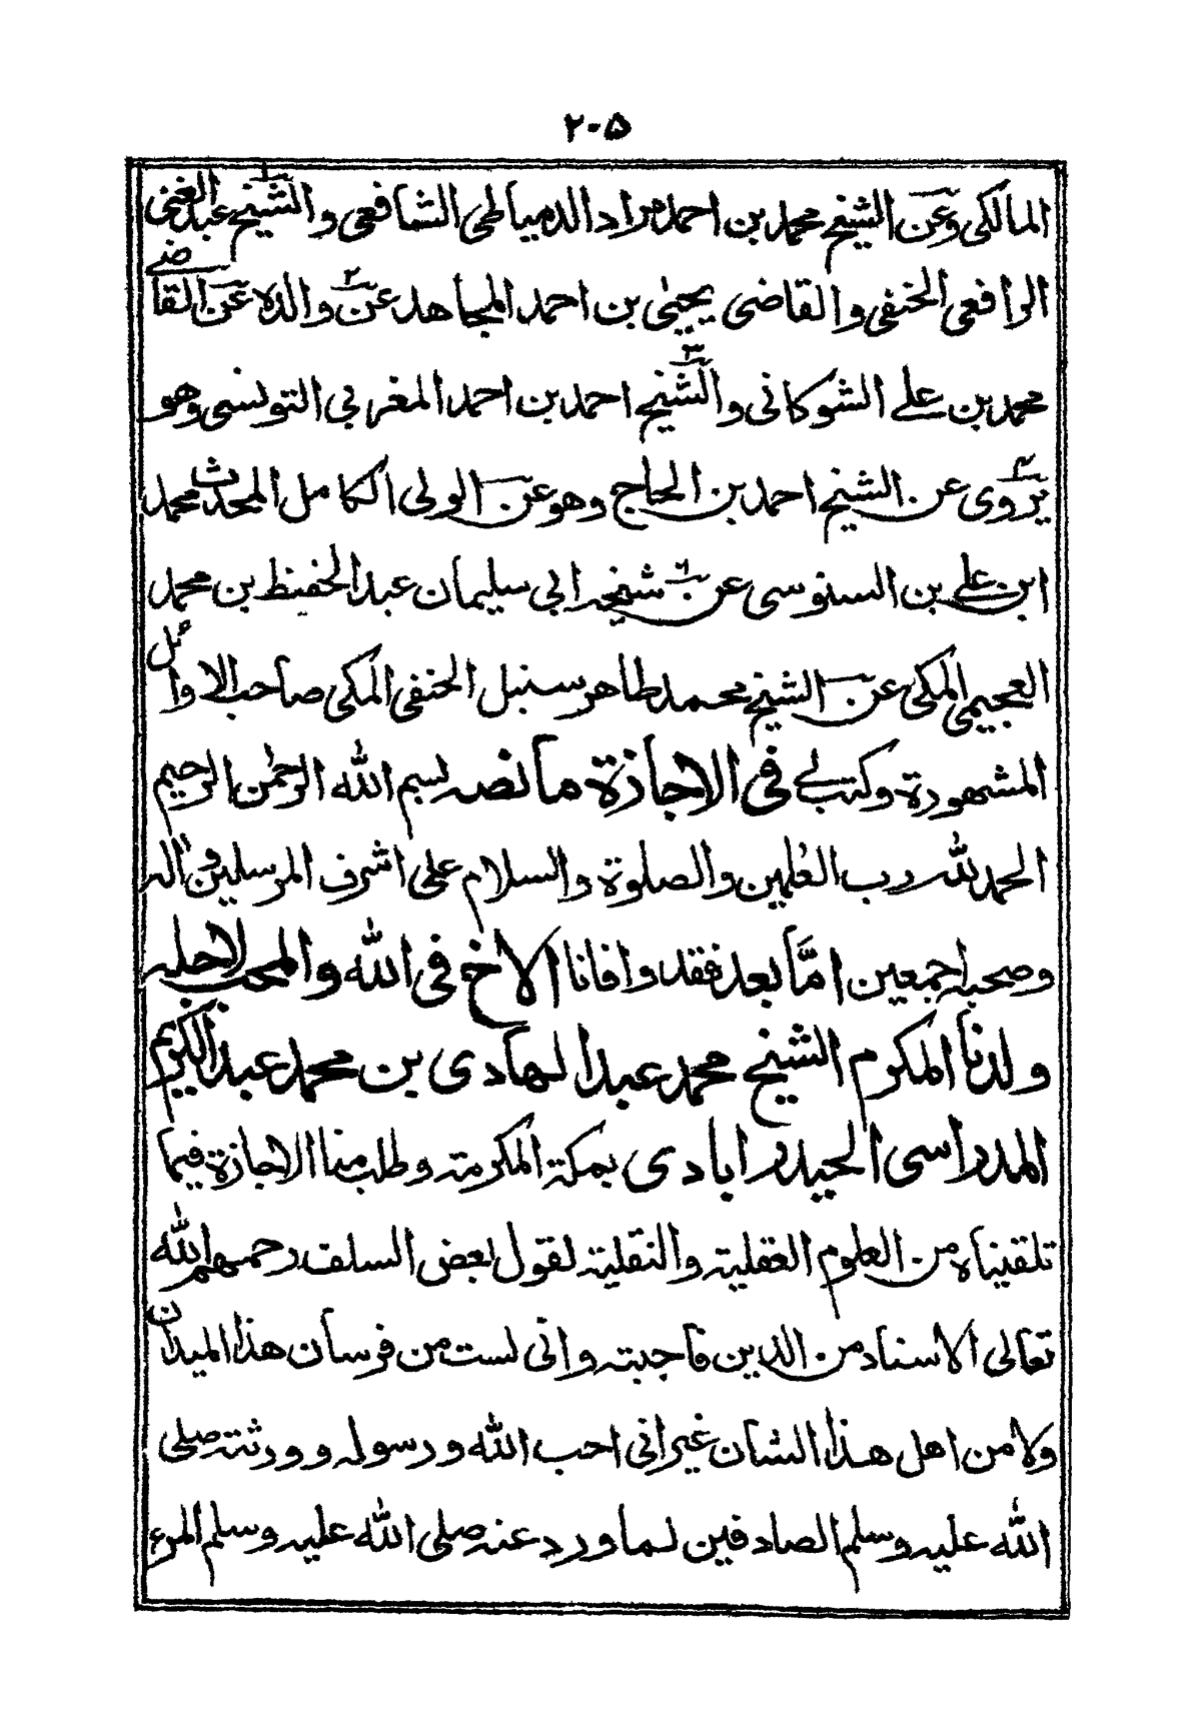 ٢٠٥
المالكى وعن الشيخ محمد بن احمد مراد الدمياطى الشافعى والشيخ عبد الغنى
الرافعى الحنفى والقاضى يحيى بن احمد المجاهد عن والده عن القاضے
محمد بن علے الشوكانى والشيخ احمد بن احمد المغربى التونسى وهو
يروى عن الشيخ احمد بن الحاج وهو عن الولى الكامل المحدث محمد
ابن علے بن السنوسى عن شيخه ابى سليمان عبد الحفيظ بن محمد
العجيمى المكى عن الشيخ محمد طاهر سنبل الحنفى المكى صاحب الاوائل
المشهورة وكتب لے فى الاجازة ما نصه بسم الله الرحمٰن الرحيم
الحمد لله رب العٰلمين والصلوة والسلام على اشرف المرسلين وآله
وصحبه اجمعين امَّا بعد فقد وافانا الاخ فى الله والمحب لاجله
ولدنا المكرم الشيخ محمد عبد الهادى بن محمد عبد الكريم
المدراسى الحيدر ابادى بمكة المكرمة وطلب منا الاجازة فيما
تلقيناه من العلوم العقلية والنقلية لقول بعض السلف رحمهم الله
تعالى الاسناد من الدين فاجبته وانى لست من فرسان هذا الميدان
ولا من اهل هذا الشان غير انى احب الله ورسوله وورثته صلى
الله عليه وسلم الصادقين لما ورد عنه صلى الله عليه وسلم المرء